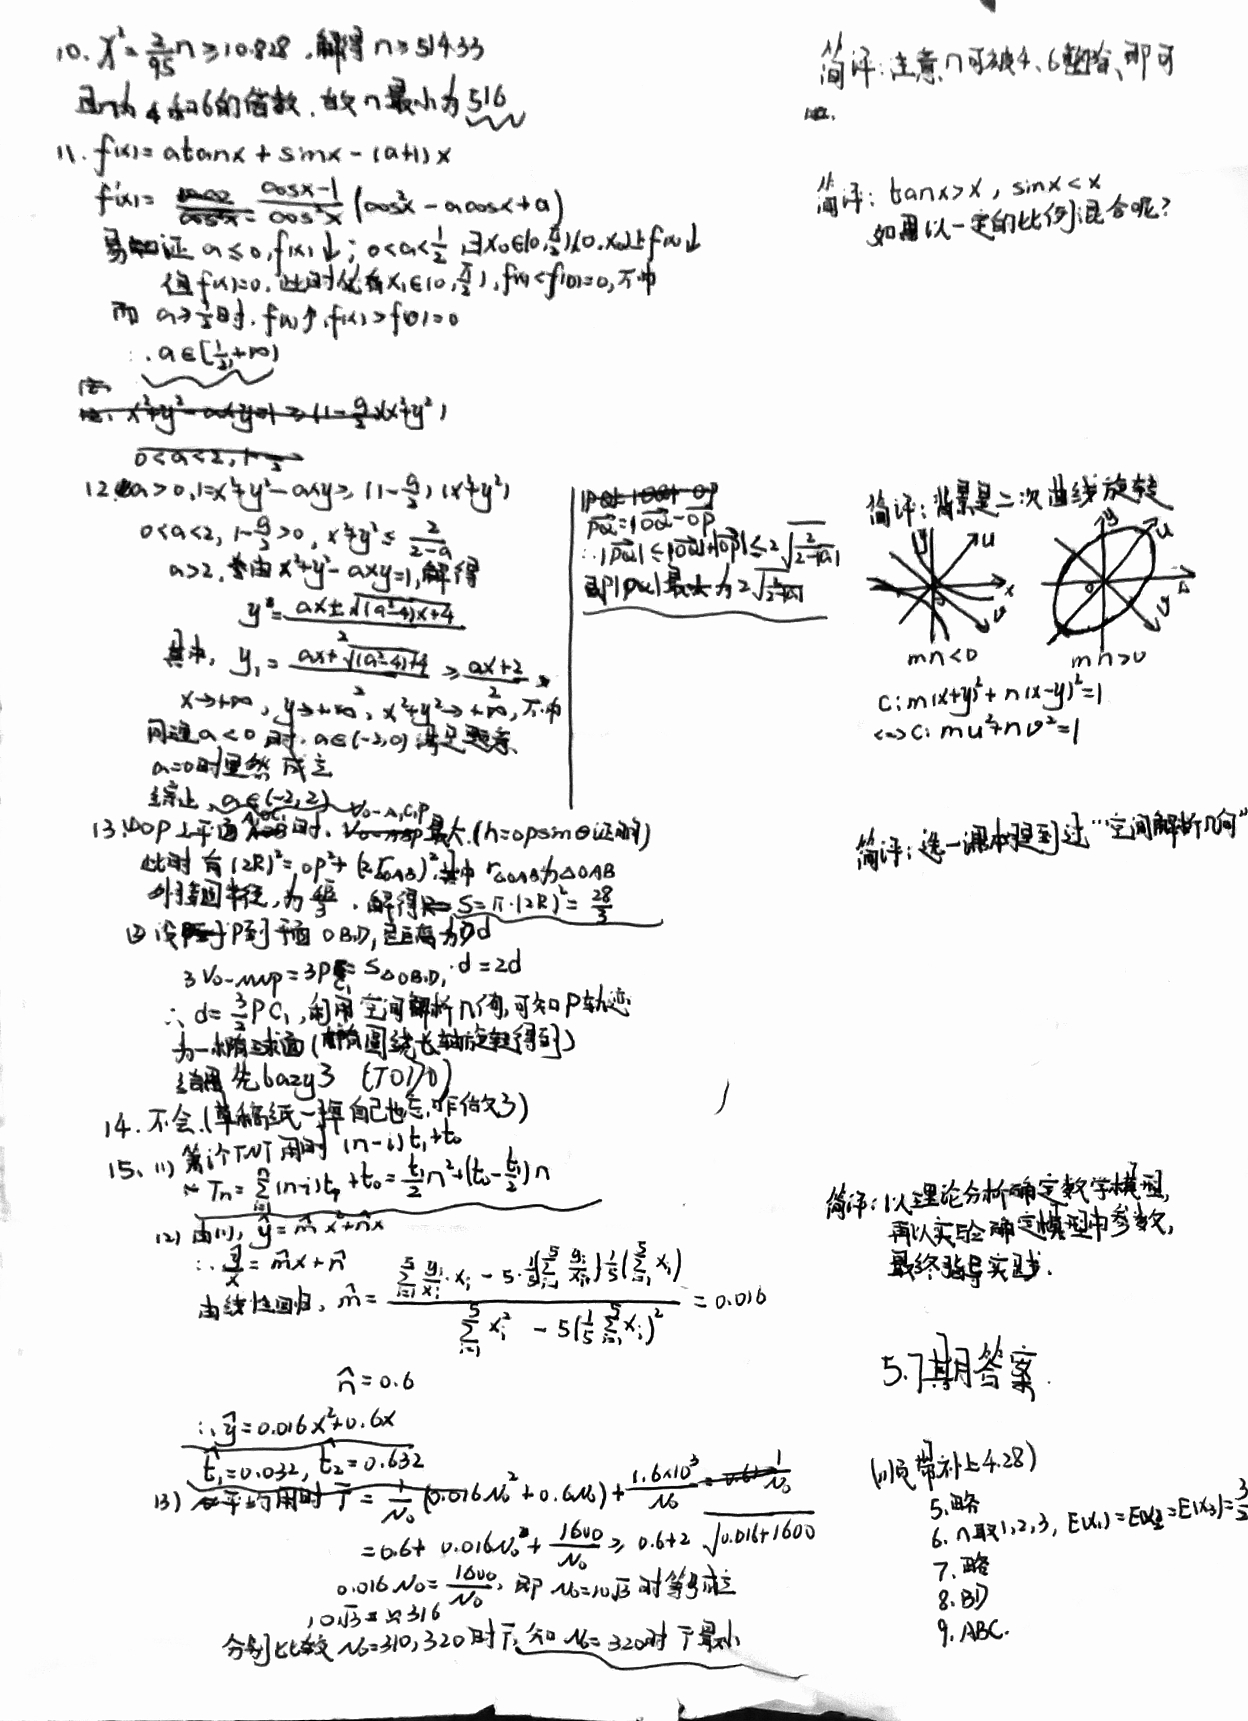 10. χ²=2/95 n≥10.828,解得n≥514.33
且n为4和6的倍数,故n最小为516
简评:注意n可被4、6整除,即可
11. f(x)=atanx+sinx-(a+1)x
f'(x)= (cosx-1)/cos²x (cos²x-acosx+a)
易知证 a≤0, f(x)↓; 0<a<1/2, ∃x₀∈(0,π/2),(0,x₀)上f(x)↓
但f(x)=0, 此时必有x₁∈(0,π/2), f(x₁)<f(0)=0,不中
而 a≥1/2时, f(x)↑, f(x)>f(0)=0
∴ a∈[1/2,+∞)
简评: tanx>x, sinx<x
如果以一定的比例混合呢?
x²+y²-axy=1≥(1-a/2)(x²+y²)
0<a<2, 1-a/2
12. a>0, 1=x²+y²-axy≥(1-a/2)(x²+y²)
0<a<2, 1-a/2>0, x²+y²≤2/(2-a)
a>2, 由x²+y²-axy=1,解得
y=(ax±√((a²-4)x+4))/2
其中, y₁=(ax+√((a²-4)+4))/2≥(ax+2)/2
x→+∞, y→+∞, x²+y²→+∞,不中
同理a<0时, a∈(-2,0)满足题意
a=0时显然成立
综上, a∈(-2,2)
PQ=|OQ-OP
∴|PQ|≤|OQ|+|OP|≤2√(2/(2-|a|))
即|PQ|最大为2√(2/(2-|a|))
简评:背景是二次曲线旋转
y u x v
mn<0
y u x v
mn>0
C: m(x+y)²+n(x-y)²=1
<=>C: mu²+nv²=1
13. ①OP⊥平面A₁OC₁时, V₀-A₁C₁P最大.(h=opsinθ证明)
此时有(2R)²=OP²+(2r△OAB)²,其中r△OAB为△OAB
外接圆半径,为 . 解得 S=π·(2R)²=28/3
②设P到平面OB₁D₁距离为d
3V₀-mnp=3PC₁=S△OB₁D₁·d=2d
∴d=3/2PC₁,利用空间解析几何,可知P轨迹
为一椭球面(椭圆绕长轴旋转得到)
先bazy3 (TOT)
简评:选一课本提到过“空间解析几何”
14. 不会.(草稿纸一掉自己也忘咋做又了)
15. (1) 第i个TNT用时 (n-i)t₁+t₀
∴Tn=Σ(n-i)t₁+t₀=t₁/2 n²+(t₀-t₁/2)n
(2) 由(1), ŷ=m̂x²+n̂x
∴ŷ/x=m̂x+n̂
由线性回归, m̂=(Σ yᵢ/xᵢ·xᵢ-5·1/5(Σyᵢ/xᵢ)1/5(Σxᵢ))/(Σxᵢ²-5(1/5Σxᵢ)²)=0.016
n̂=0.6
∴ŷ=0.016x²+0.6x
t̂₁=0.032, t̂₂=0.632
简评:以理论分析确定数学模型,
再以实验确定模型中参数,
最终指导实践.
(3) 平均用时 T̄=1/N₀(0.016N₀²+0.6N₀)+1.6×10³/N₀
=0.6+0.016N₀+1600/N₀≥0.6+2√(0.016+1600)
0.016N₀=1600/N₀, 即N₀=10√3时等号成立
10√3≈316
分别比较N₀=310,320时T̄,知N₀=320时T̄最小
5.7期答案
(顺带补上4.28)
5. 略
6. n取1,2,3, E(X₁)=E(X₂)=E(X₃)=3/2
7. 略
8. BD
9. ABC.